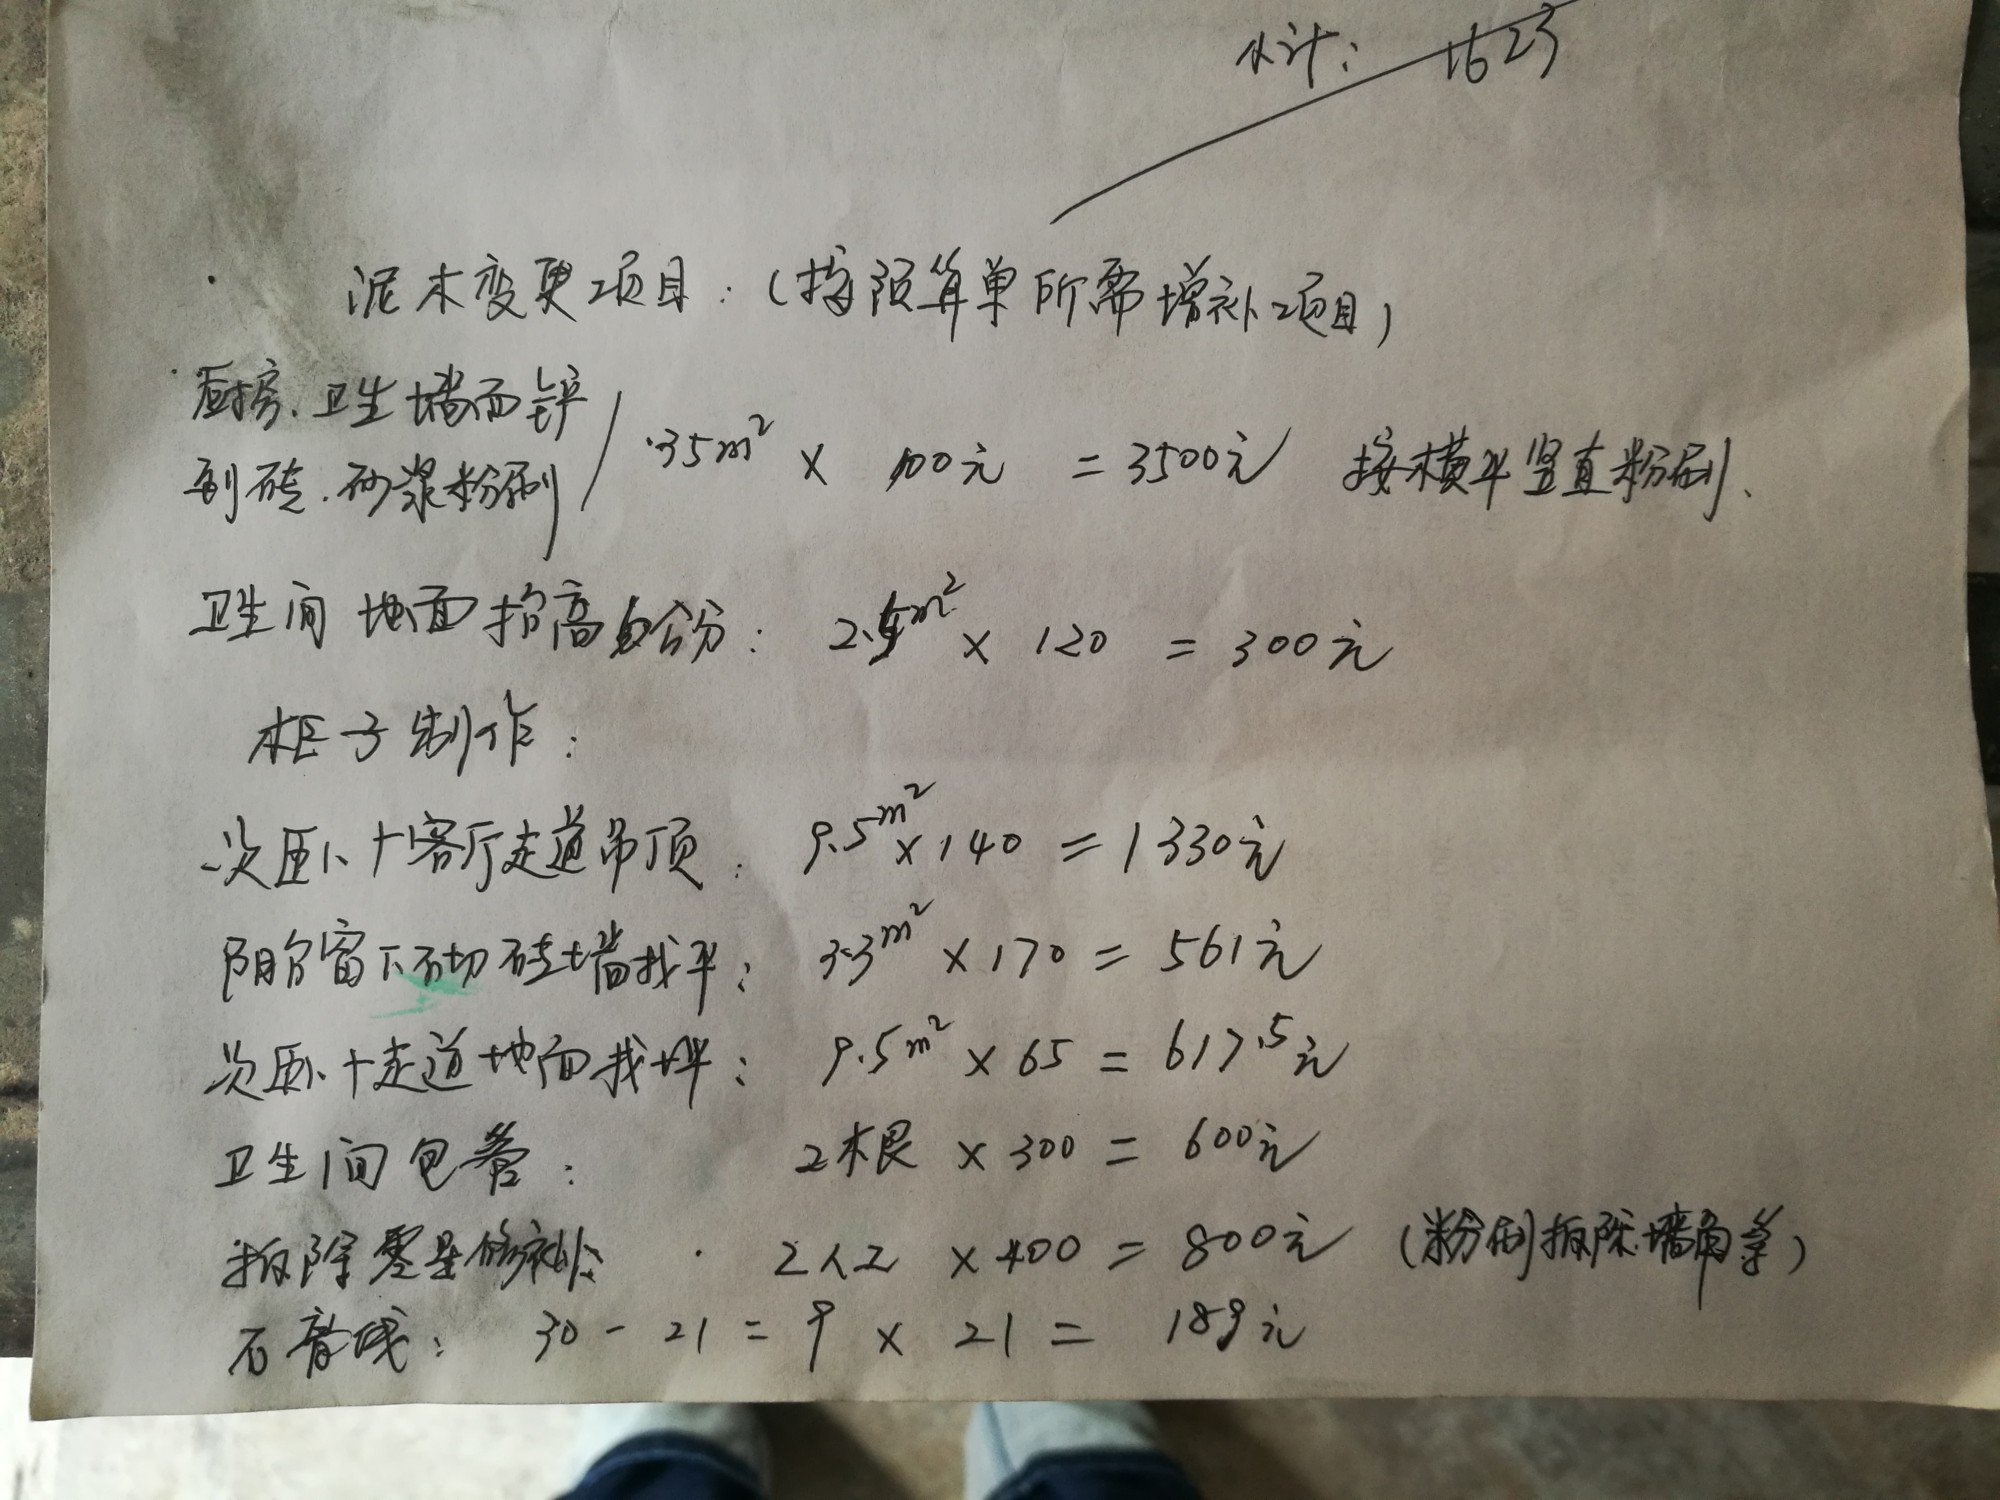 小计: 1623
泥木变更项目:(按预算单所需增补项目)
厨房.卫生墙面铲
到砖.砂浆粉刷 / 35m² × 100元 = 3500元 按横平竖直粉刷、
卫生间地面抬高部分: 2.5m² × 120 = 300元
柜子制作:
次卧+客厅走道吊顶: 9.5m² × 140 = 1330元
阴台窗下石切砖墙找平: 3.3m² × 170 = 561元
次卧+走道地面找坪: 9.5m² × 65 = 617.5元
卫生间包管: 2根 × 300 = 600元
拆除零星修补: 2人工 × 400 = 800元 (粉刷拆除墙角等)
石膏线: 30 - 21 = 9 × 21 = 189元